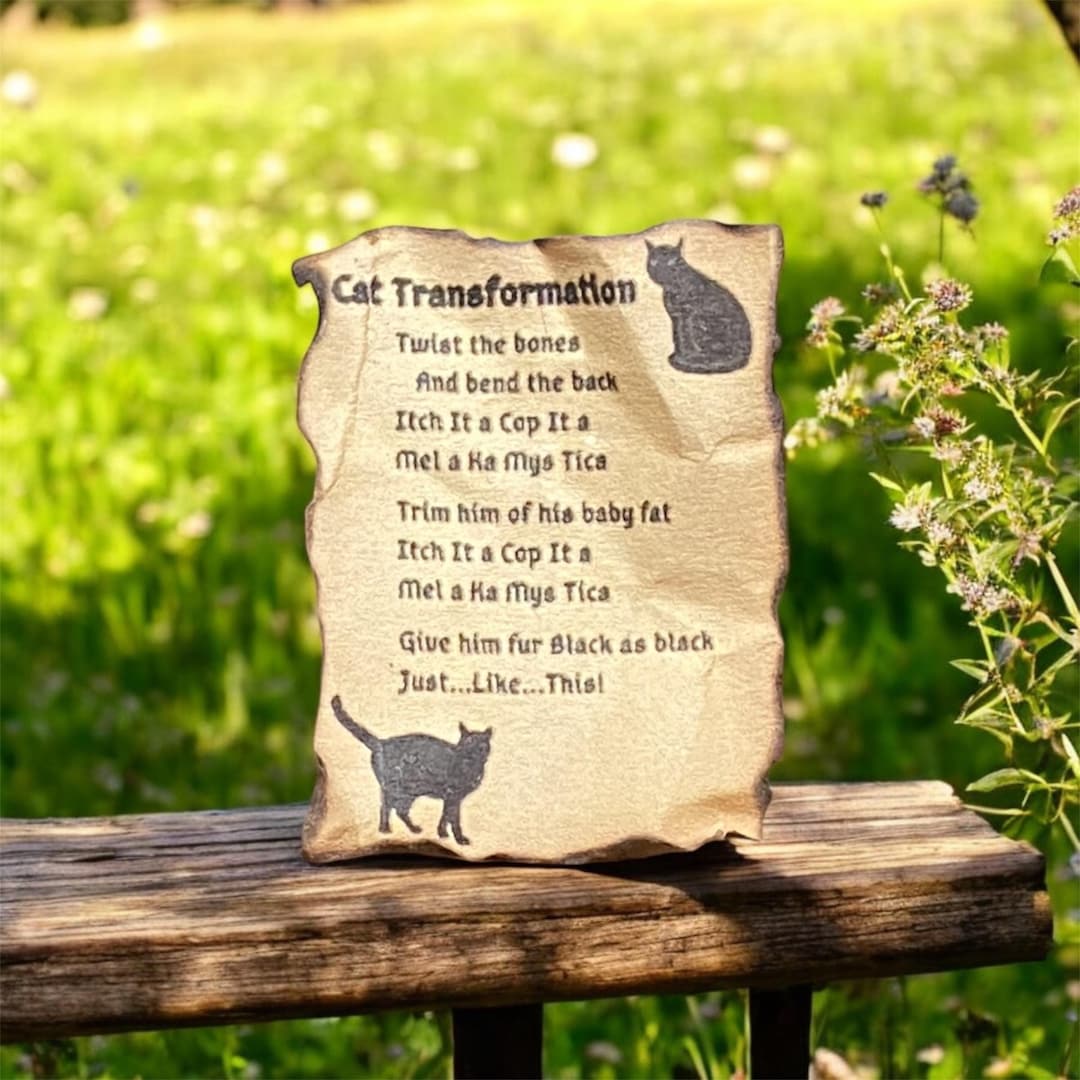 Cat Transformation
Twist the bones
And bend the back
Itch It a Cop It a
Mel a Ka Mys Tica
Trim him of his baby fat
Itch It a Cop It a
Mel a Ka Mys Tica
Give him fur Black as black
Just...Like...This!